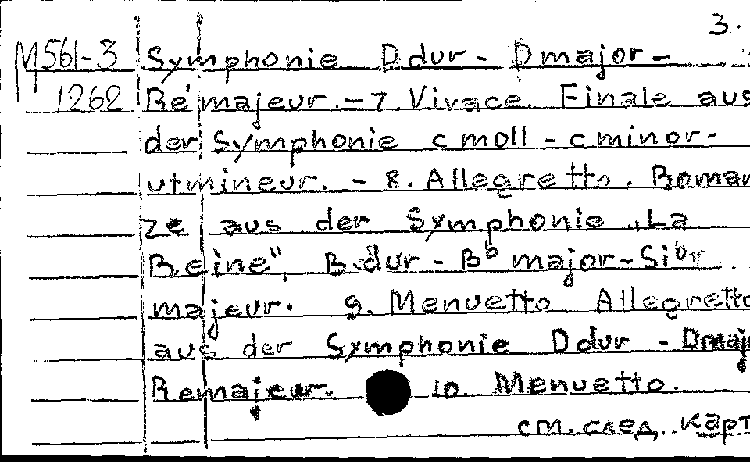 3.
M561-3 Symphonie D dur - D major -
1262 Ré majeur. - 7. Vivace Finale aus
der Symphonie c moll - c minor -
ut mineur. - 8. Allegretto. Roman
ze aus der Symphonie „La
Reine", B dur - Bb major - Si b
majeur. 9. Menuetto Allegretto
aus der Symphonie D dur - D maj
Remajeur. 10 Menuetto.
см. след. карт